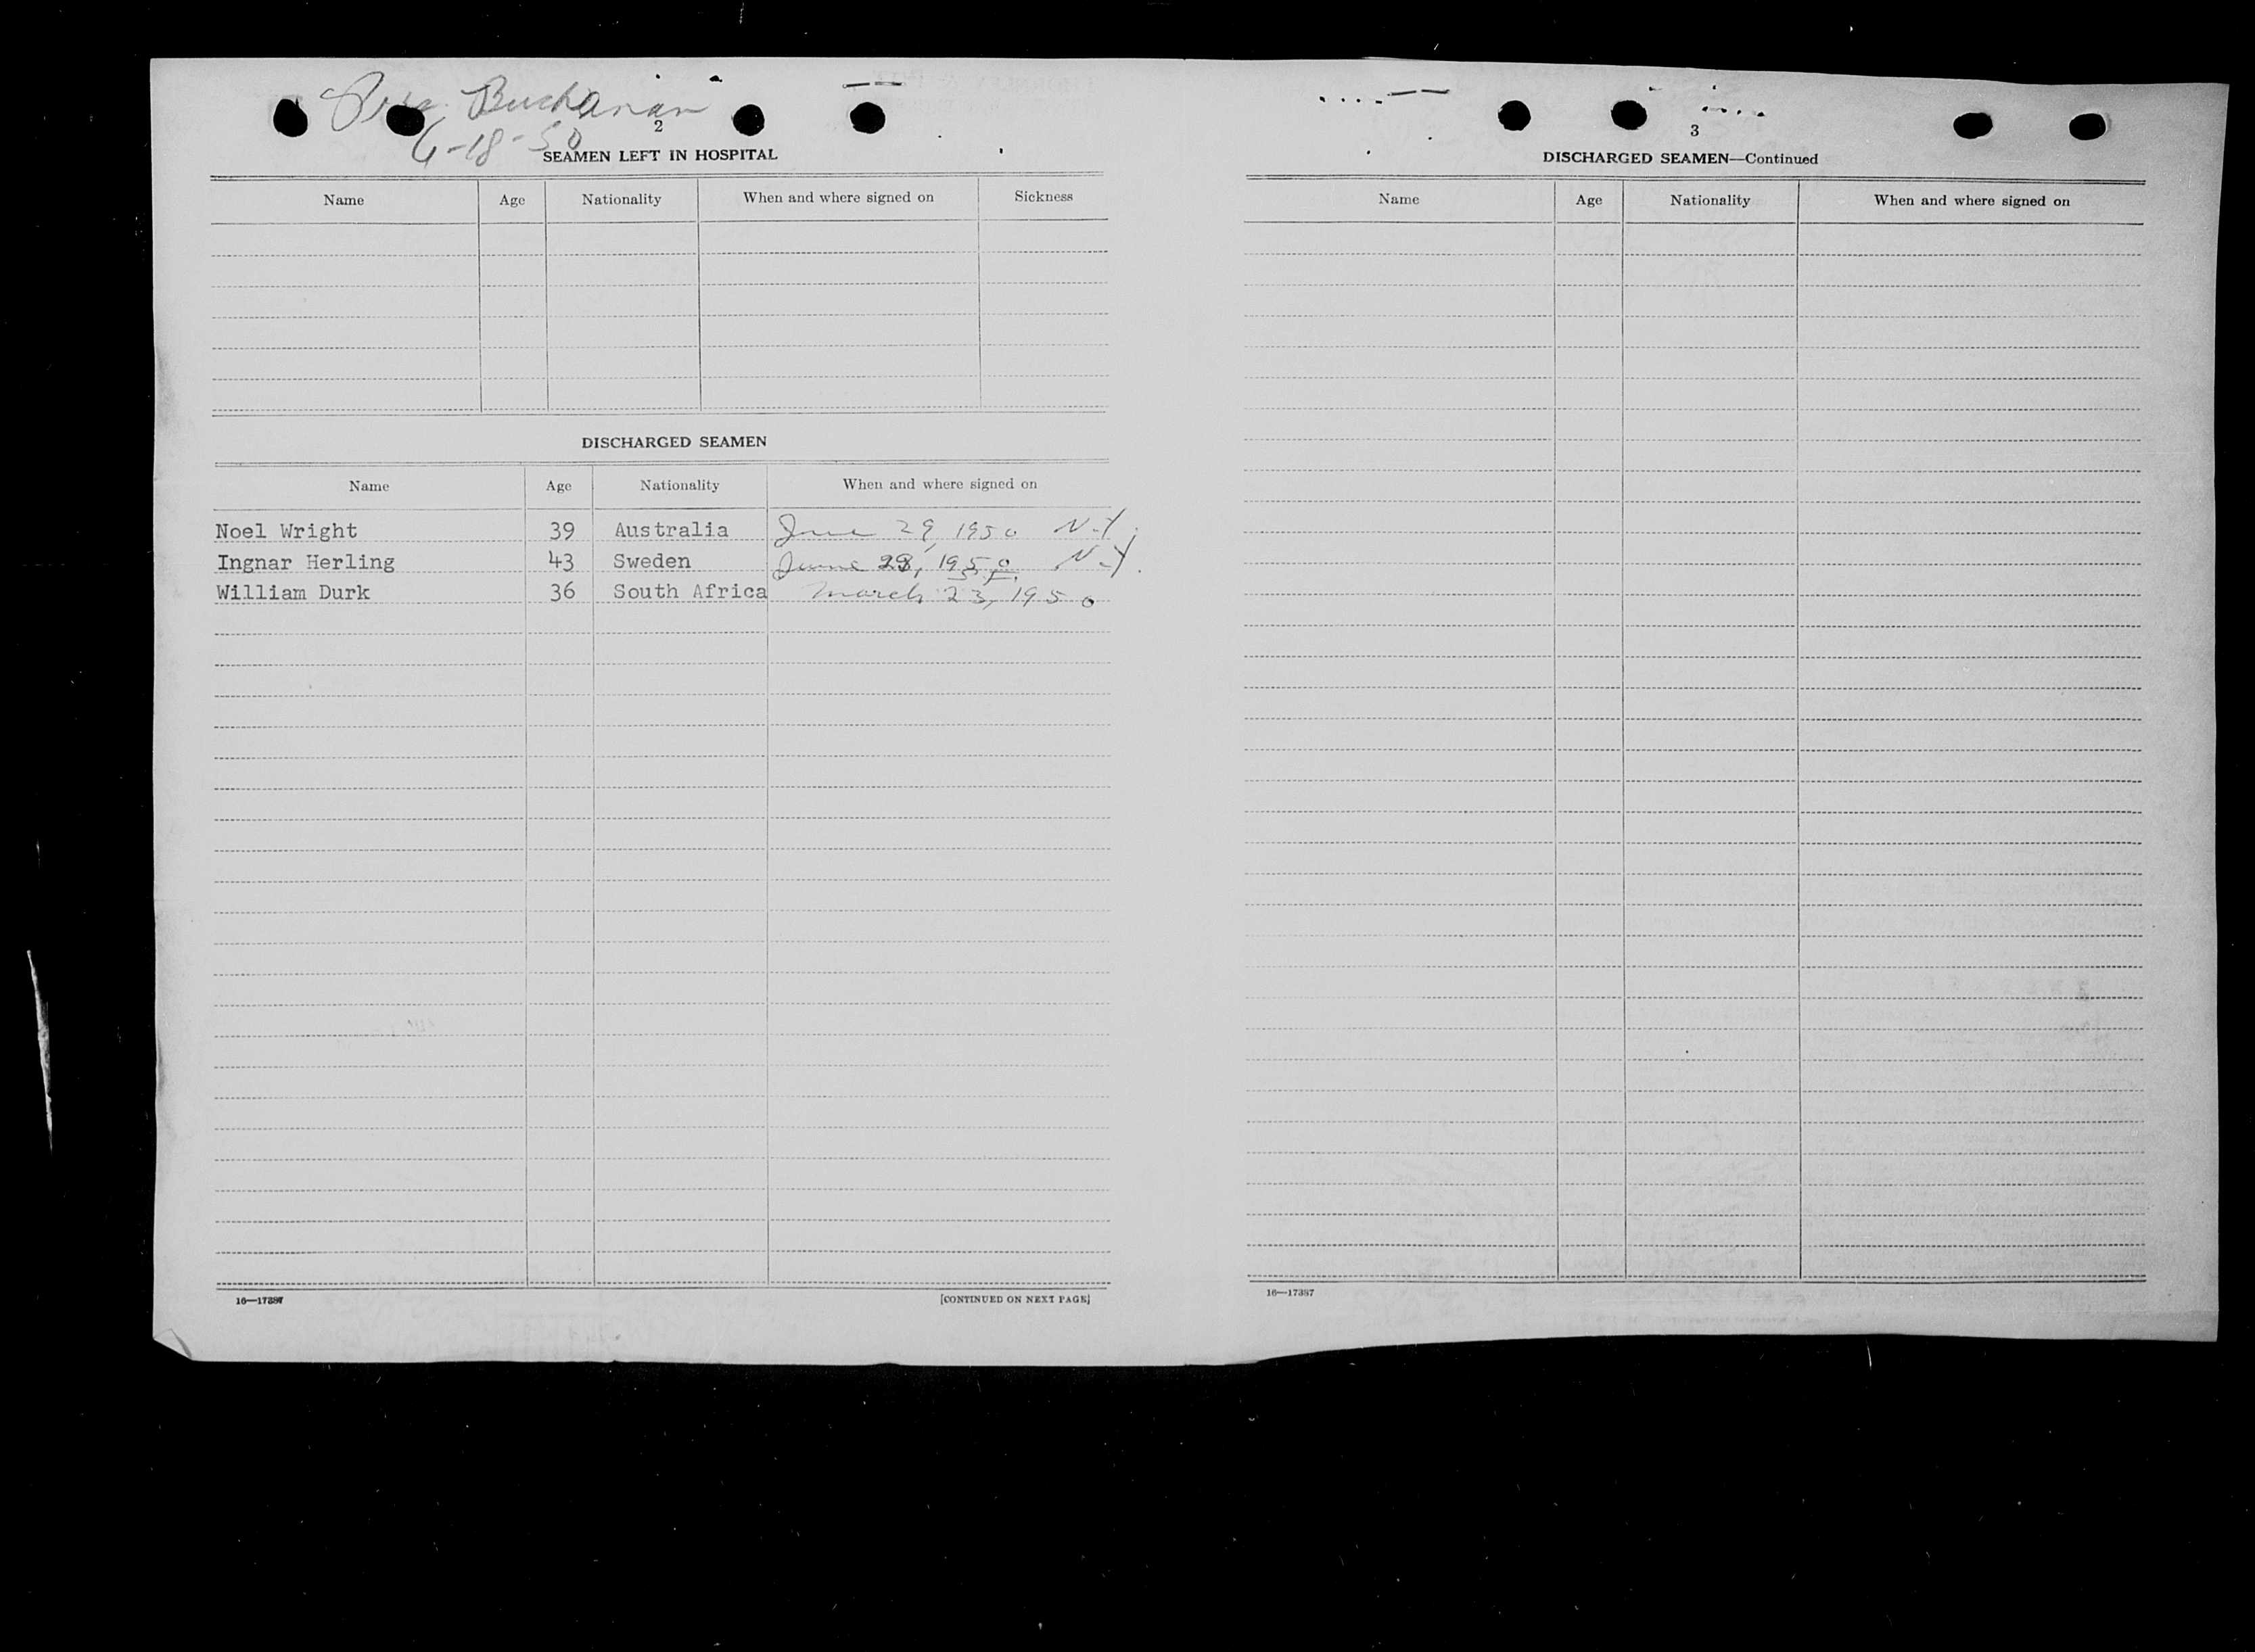 Pres. Buchanan
6-18-50
2
SEAMEN LEFT IN HOSPITAL
Name Age Nationality When and where signed on Sickness
DISCHARGED SEAMEN
Name Age Nationality When and where signed on
Noel Wright 39 Australia June 29, 1950 N.Y.
Ingnar Herling 43 Sweden June 29, 1950 N.Y.
William Durk 36 South Africa March 23, 1950
16—17387
[CONTINUED ON NEXT PAGE]
3
DISCHARGED SEAMEN—Continued
Name Age Nationality When and where signed on
16—17387